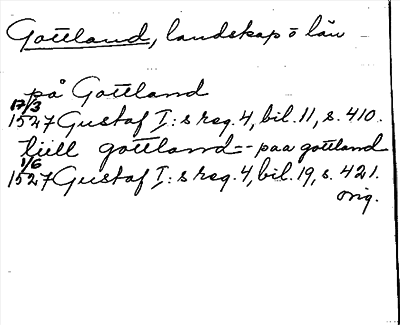 Gottland, landskap o län
på Gottland
17/3
1527 Gustaf I:s reg. 4, bil. 11, s. 410.
till gottland -- paa gottland
1/6
1527 Gustaf I:s reg. 4, bil. 19, s. 421.
orig.